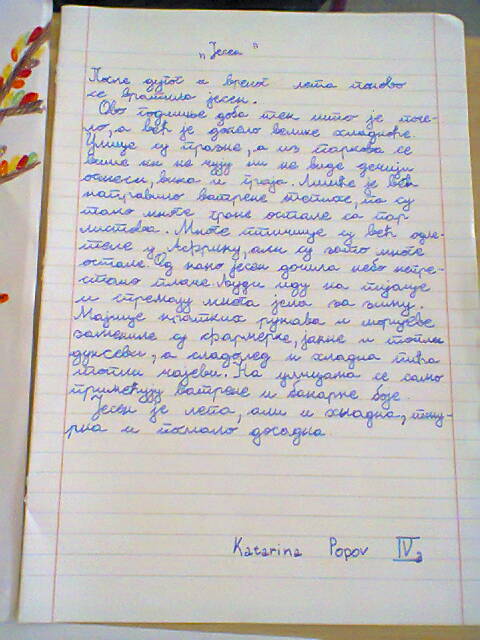 „Јесен”
После дугог и врелог лета поново
се вратила јесен.
Ово годишње доба тек што је поче-
ло, а већ је донело велике хладноће.
Улице су празне, а из паркова се
више ни не чују ни не виде дечији
осмеси, вика и граја. Лишће је већ
направило ватрене тепихе, па су
тако многе гране остале са пар
листова. Многе птичице су већ одле-
теле у Африку, али су зато многе
остале. Од како јесен дошла небо непре-
стано плаче. Људи иду на пијаце
и спремају многа јела за зиму.
Мајице кратких рукава и шорцеве
замениле су фармерке, јакне и топли
дуксеви, а сладолед и хладна пића
топли чајеви. На улицама се само
примећују ватрене и бакарне боје.
Јесен је лепа, али и хладна, тму-
рна и помало досадна.
Katarina Popov IVa